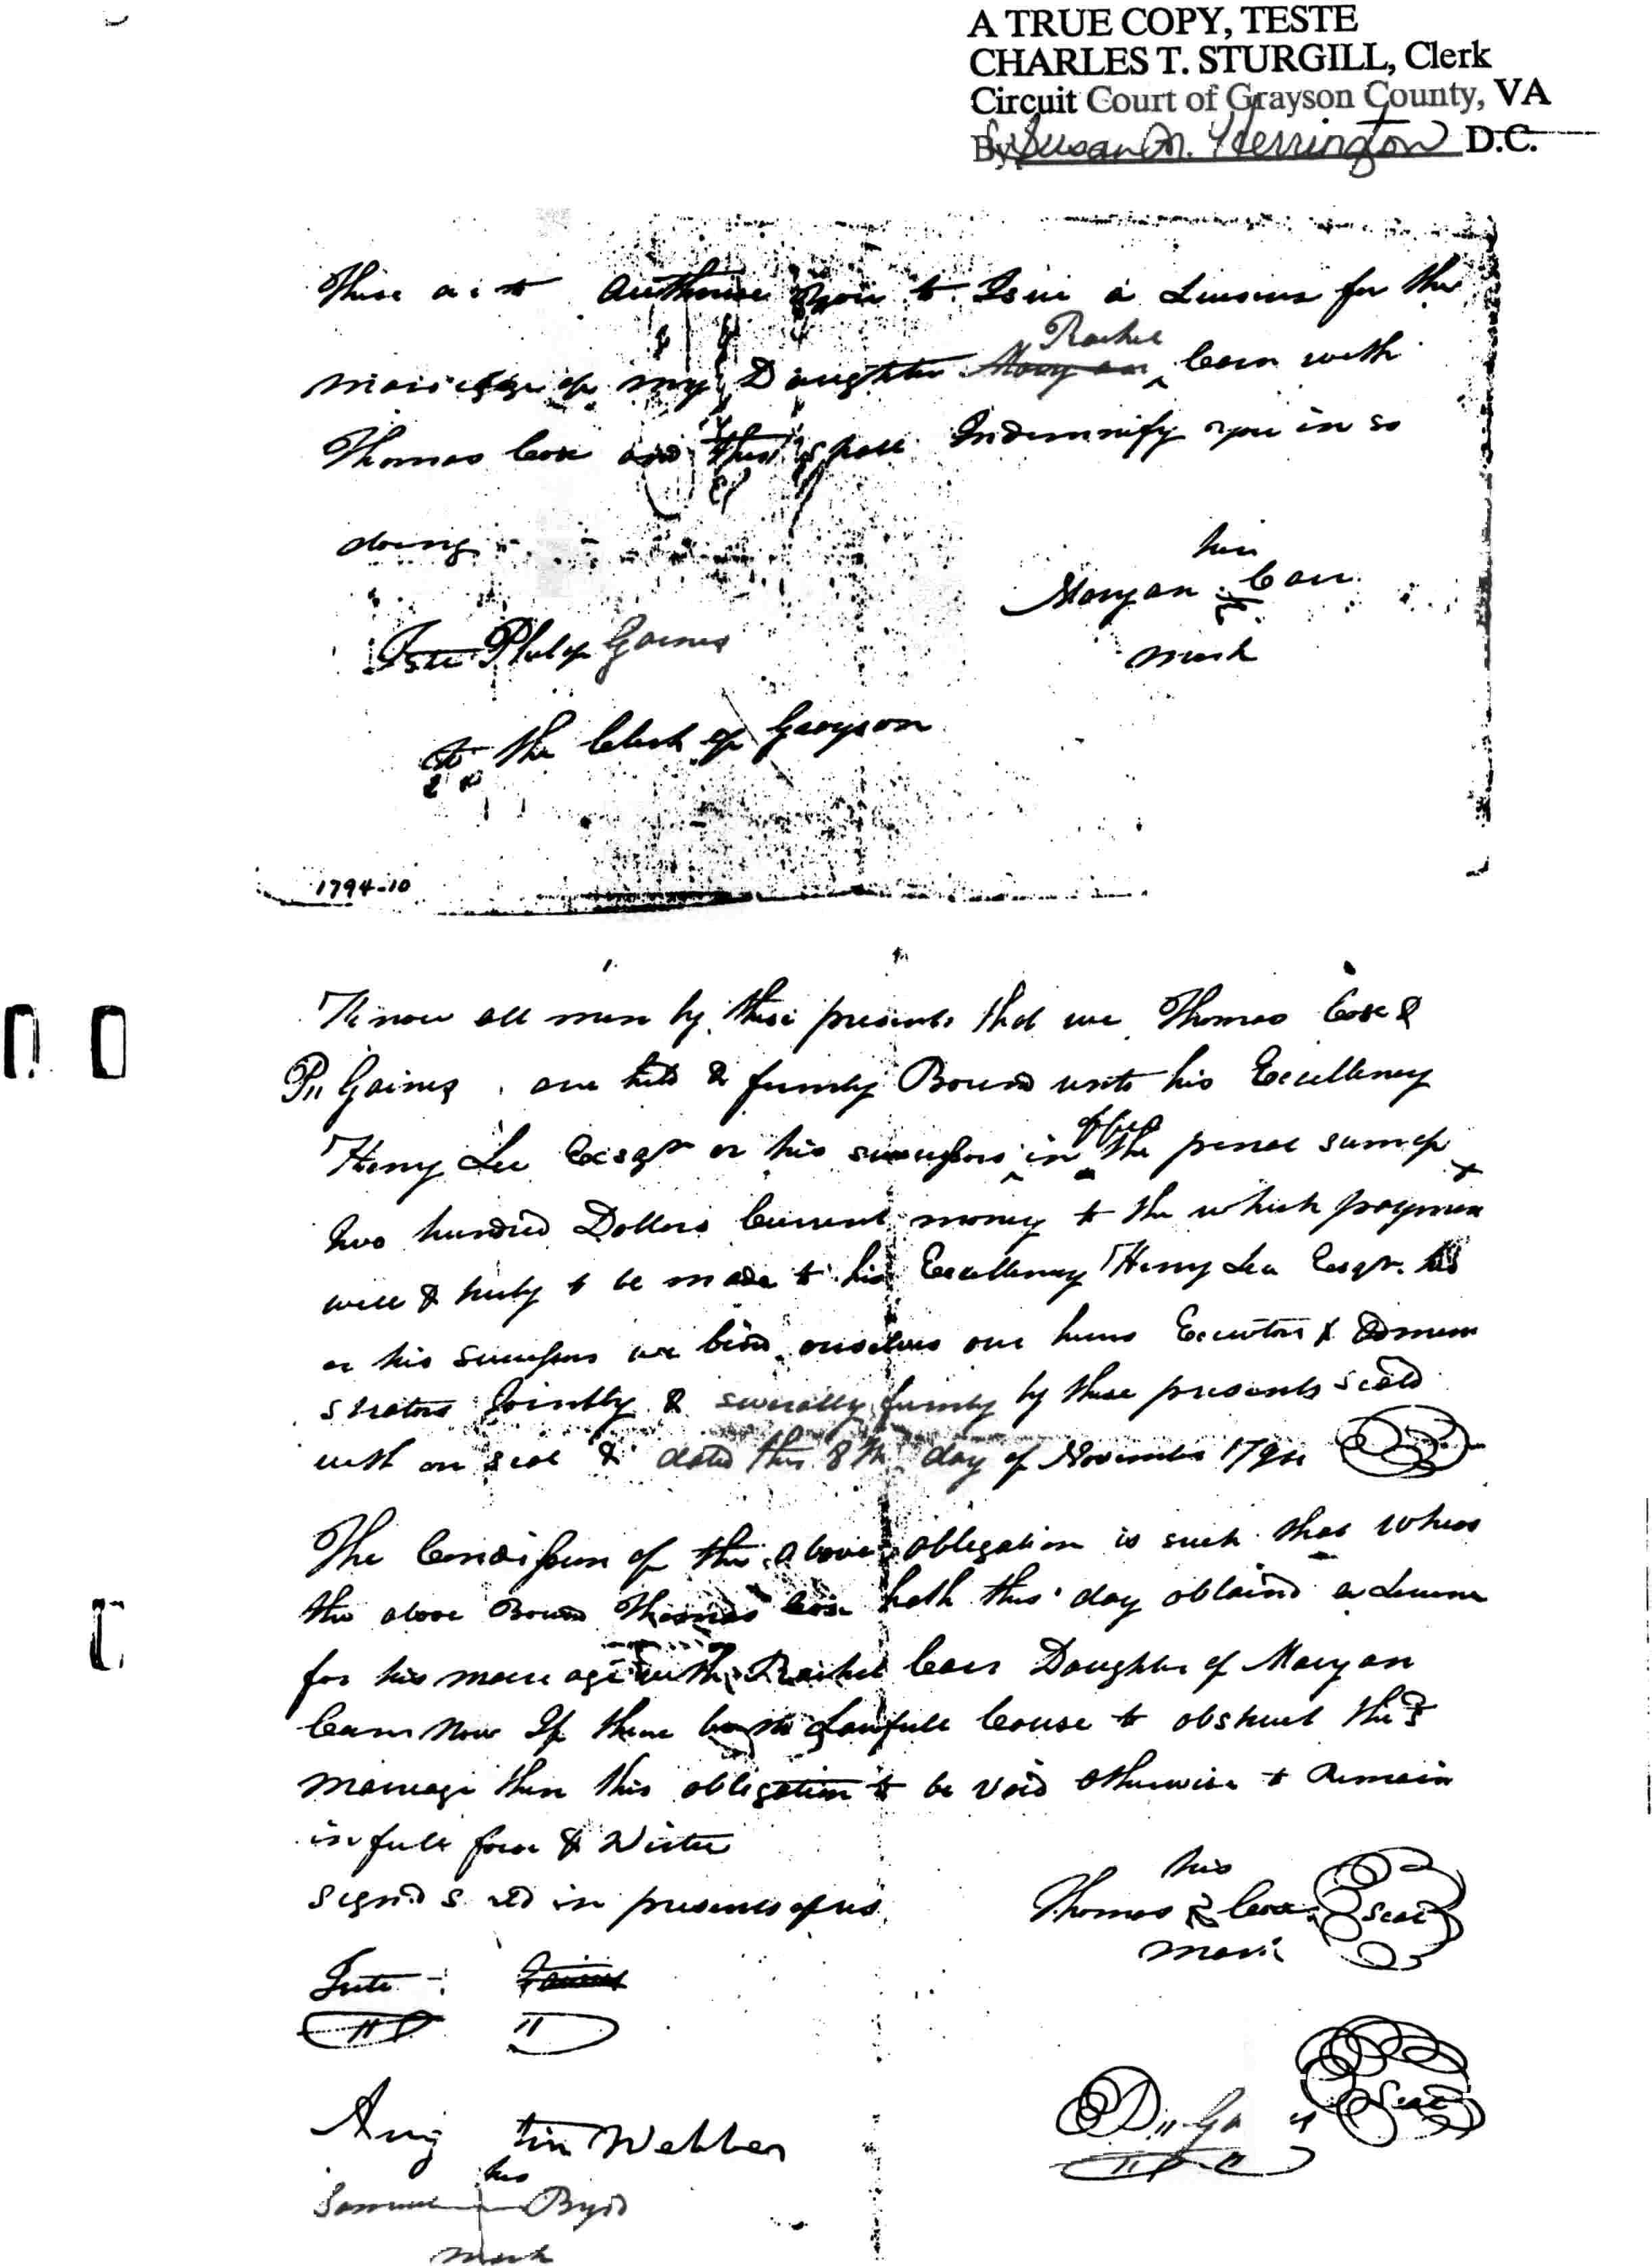 A TRUE COPY, TESTE
CHARLES T. STURGILL, Clerk
Circuit Court of Grayson County, VA
By Susan M. Herrington D.C.
These are to Authorise you to Isue a Lisense for the
Rachel
marriage of my Daughter Morgan Carr with
Thomas Cox and this shall Indemnify you in so
doing
his
Morgan Carr
mark
Teste Philip Gaines
to the Clerk of Grayson
1794-10
Know all men by these presents that we Thomas Cox &
Pn Gaines are held & firmly Bound unto his Excellency
Henry Lee Esqr or his sucessors in office the penal sum of
two hundred Dollars Current money to the which payment
well & truly to be made to his Excellency Henry Lee Esqr.
or his sucessors we bind ourselves our heirs Executors &
Jointly & severally firmly by these presents seald
with our seal & dated this 8th day of November 179
The Condission of the above obligation is such that whereas
the above Bound Thomas Cox hath this day obtaind a Lisense
for his marriage with Rachel Carr Daughter of Morgan
Carr Now If there be no Lawfull Cause to obstruct this
marriage then this obligation to be void otherwise to Remain
in full force & Virtue
signd seald in presents of us
his
Thomas Cox Seal
mark
Teste
Aug tin Webber
Seal
his
Samuel Byrd
mark